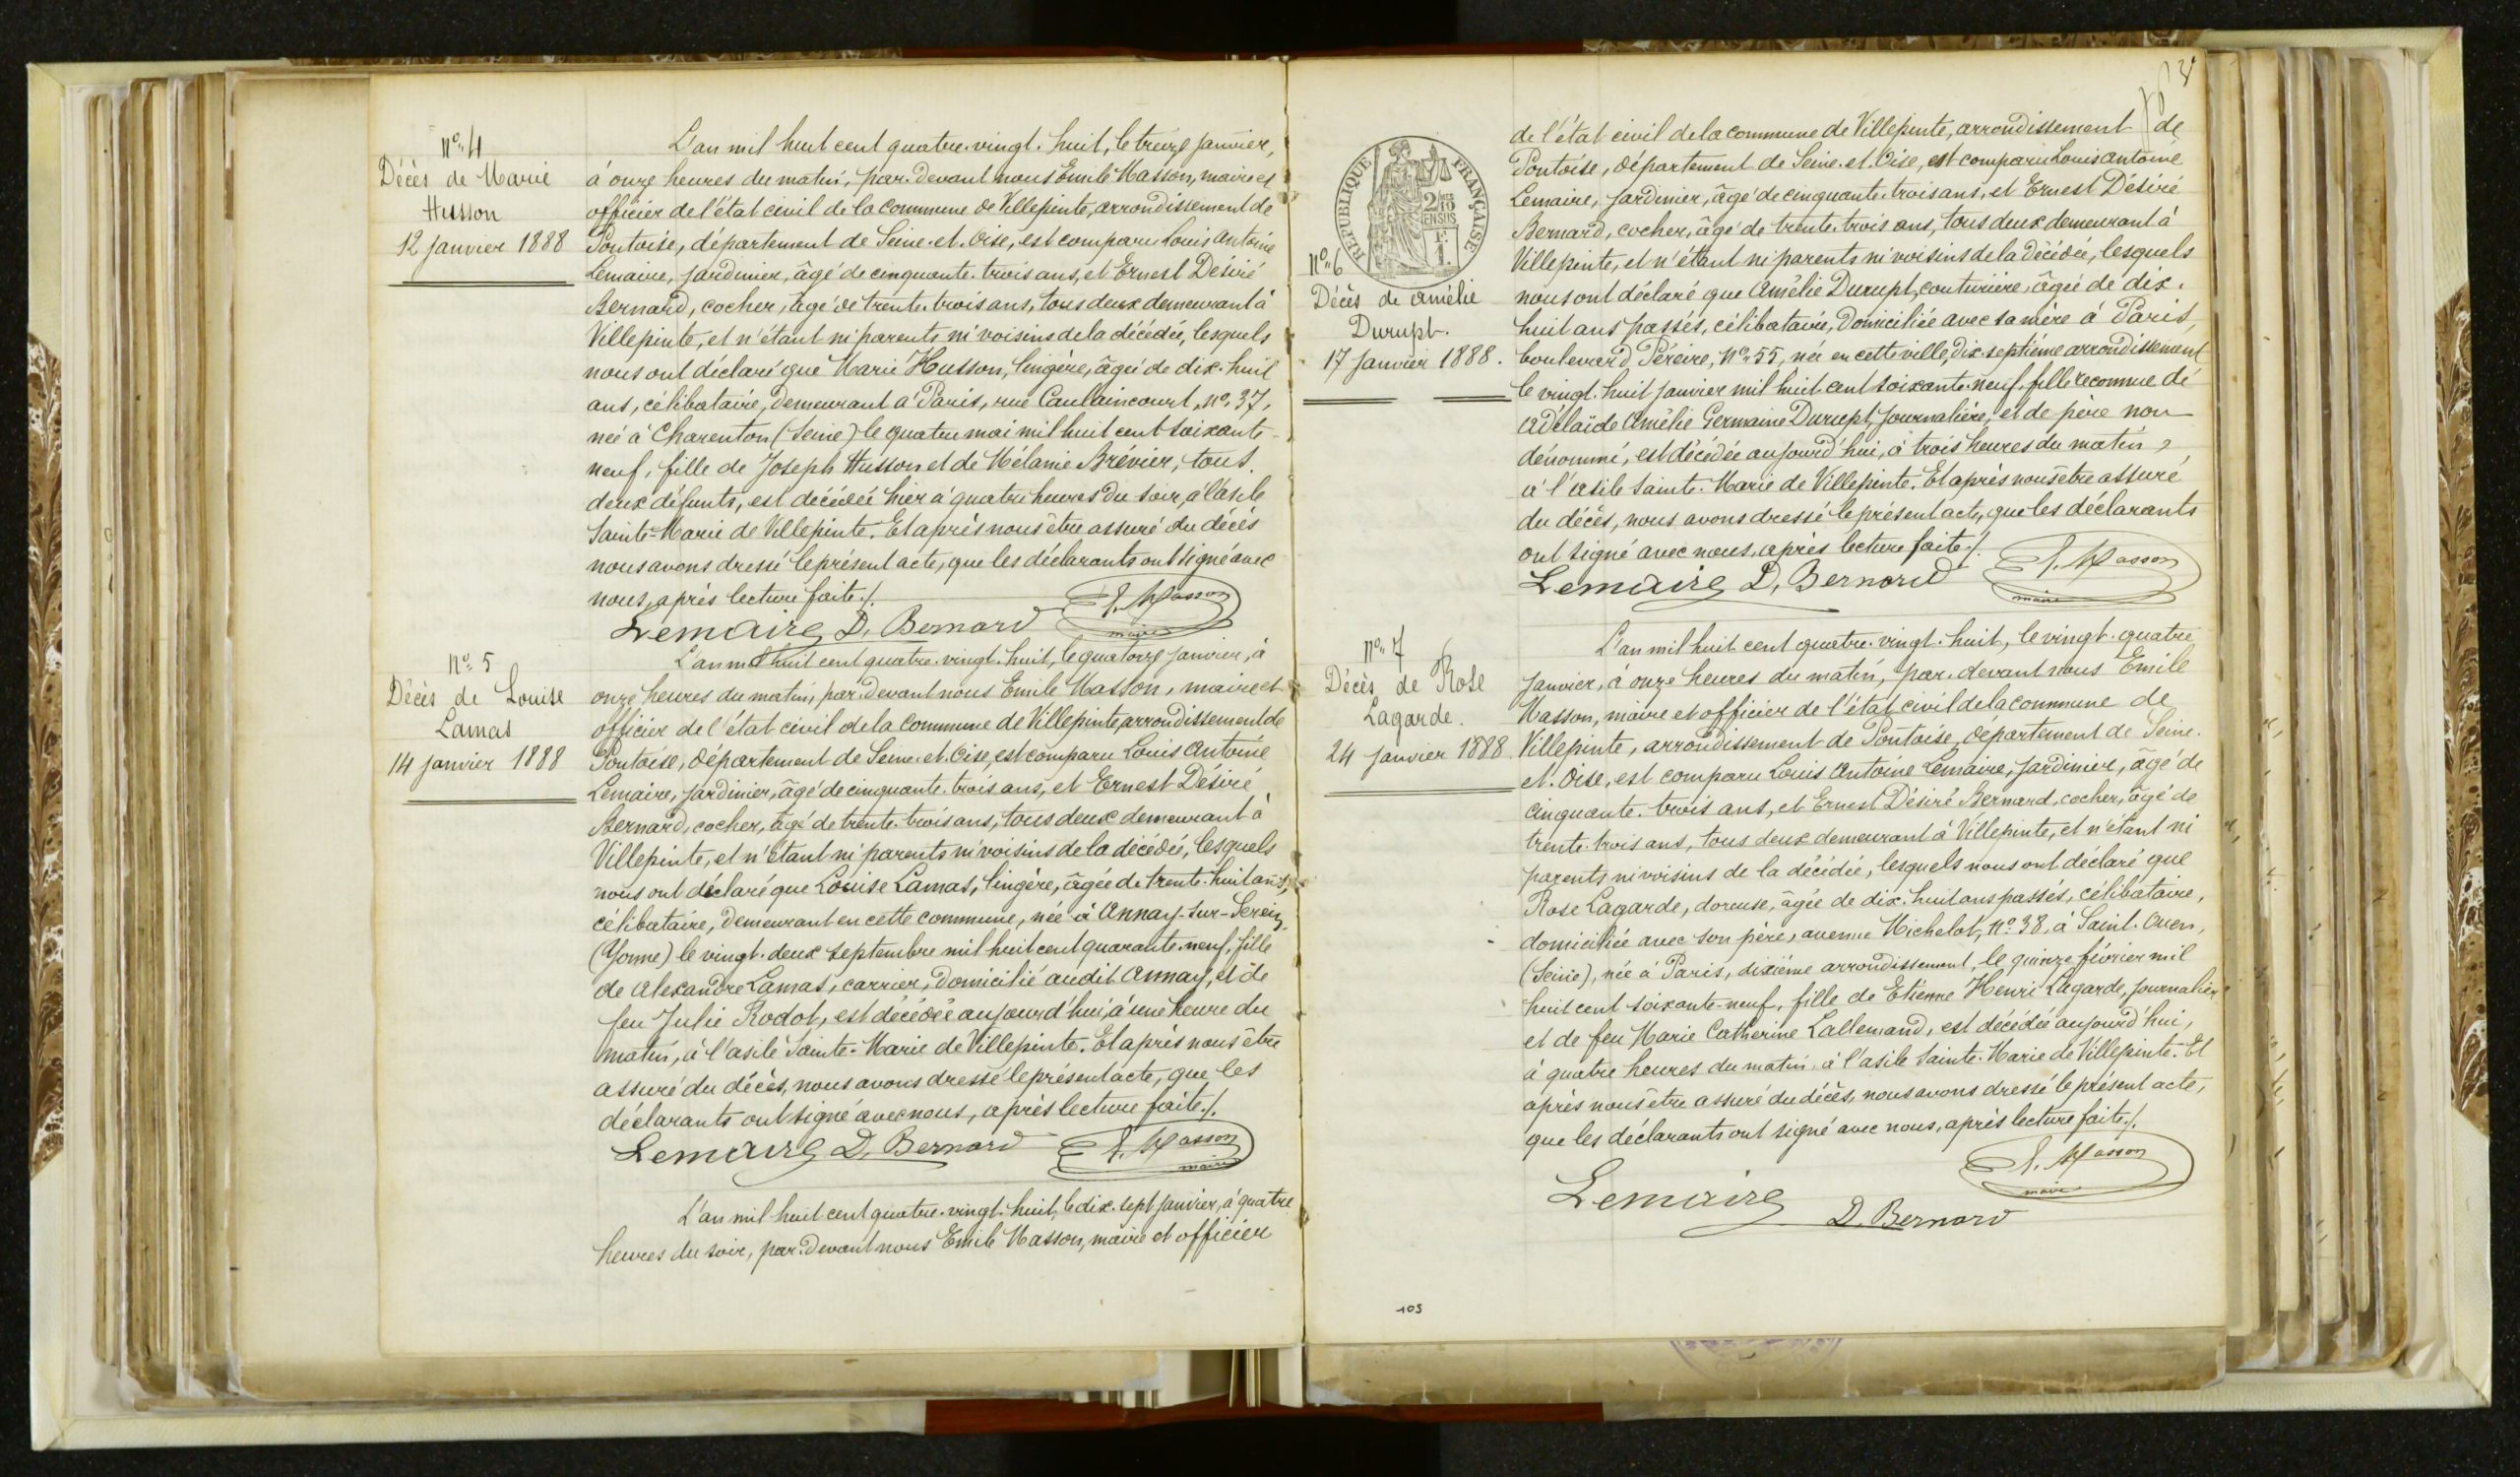 N° 4
Décès de Marie
Husson
12 janvier 1888
L'an mil huit cent quatre-vingt-huit, le treize janvier,
à onze heures du matin, par-devant nous Emile Masson, maire et
officier de l'état civil de la commune de Villepinte, arrondissement de
Pontoise, département de Seine-et-Oise, est comparu Louis Antoine
Lemaire, jardinier, âgé de cinquante-trois ans, et Ernest Désiré
Bernard, cocher, âgé de trente-trois ans, tous deux demeurant à
Villepinte, et n'étant ni parents ni voisins de la décédée, lesquels
nous ont déclaré que Marie Husson, lingère, âgée de dix-huit
ans, célibataire, demeurant à Paris, rue Caulaincourt, N° 37,
née à Charenton (Seine) le quatre mai mil huit cent soixante-
neuf, fille de Joseph Husson et de Mélanie Brévier, tous
deux défunts, est décédée hier à quatre heures du soir, à l'asile
Sainte-Marie de Villepinte. Et après nous être assuré du décès
nous avons dressé le présent acte, que les déclarants ont signé avec
nous, après lecture faite ./.
Lemaire D. Bernard E. Masson
maire
N° 5
Décès de Louise
Lamas
14 janvier 1888
L'an mil huit cent quatre-vingt-huit, le quatorze janvier, à
onze heures du matin, par-devant nous Emile Masson, maire et
officier de l'état civil de la commune de Villepinte, arrondissement de
Pontoise, département de Seine-et-Oise, est comparu Louis Antoine
Lemaire, jardinier, âgé de cinquante-trois ans, et Ernest Désiré
Bernard, cocher, âgé de trente-trois ans, tous deux demeurant à
Villepinte, et n'étant ni parents ni voisins de la décédée, lesquels
nous ont déclaré que Louise Lamas, lingère, âgée de trente-huit ans,
célibataire, demeurant en cette commune, née à Annay-sur-Serein,
(Yonne) le vingt-deux septembre mil huit cent quarante-neuf, fille
de Alexandre Lamas, carrier, domicilié audit Annay, et de
feu Julie Rodot, est décédée aujourd'hui, à une heure du
matin, à l'asile Sainte-Marie de Villepinte. Et après nous être
assuré du décès, nous avons dressé le présent acte, que les
déclarants ont signé avec nous, après lecture faite ./.
Lemaire D. Bernard E. Masson
maire
L'an mil huit cent quatre-vingt-huit, le dix-sept janvier, à quatre
heures du soir, par-devant nous Emile Masson, maire et officier
3
RÉPUBLIQUE FRANÇAISE
N° 6
Décès de Amélie
Durupt.
17 Janvier 1888.
de l'état civil de la commune de Villepinte, arrondissement de
Pontoise, département de Seine-et-Oise, est comparu Louis Antoine
Lemaire, jardinier, âgé de cinquante-trois ans, et Ernest Désiré
Bernard, cocher, âgé de trente-trois ans, tous deux demeurant à
Villepinte, et n'étant ni parents ni voisins de la décédée, lesquels
nous ont déclaré que Amélie Durupt, couturière, âgée de dix-
huit ans passés, célibataire, domiciliée avec sa mère à Paris,
boulevard Péreire, N° 55, née en cette ville, dix-septième arrondissement
le vingt-huit janvier mil huit cent soixante-neuf, fille reconnue de
Adélaïde Amélie Germaine Durupt, journalière, et de père non
dénommé, est décédée aujourd'hui, à trois heures du matin,
à l'asile Sainte-Marie de Villepinte. Et après nous être assuré
du décès, nous avons dressé le présent acte, que les déclarants
ont signé avec nous, après lecture faite ./.
Lemaire D. Bernard E. Masson
maire
N° 7
Décès de Rose
Lagarde.
24 Janvier 1888
L'an mil huit cent quatre-vingt-huit, le vingt-quatre
janvier, à onze heures du matin, par-devant nous Emile
Masson, maire et officier de l'état civil de la commune de
Villepinte, arrondissement de Pontoise, département de Seine-
et-Oise, est comparu Louis Antoine Lemaire, jardinier, âgé de
cinquante-trois ans, et Ernest Désiré Bernard, cocher, âgé de
trente-trois ans, tous deux demeurant à Villepinte, et n'étant ni
parents ni voisins de la décédée, lesquels nous ont déclaré que
Rose Lagarde, doreuse, âgée de dix-huit ans passés, célibataire,
domiciliée avec son père, avenue Michelet, N° 38, à Saint-Ouen,
(Seine), née à Paris, dixième arrondissement, le quinze février mil
huit cent soixante-neuf, fille de Etienne Henri Lagarde, journalier
et de feu Marie Catherine Lallemand, est décédée aujourd'hui,
à quatre heures du matin à l'asile Sainte-Marie de Villepinte. Et
après nous être assuré du décès, nous avons dressé le présent acte,
que les déclarants ont signé avec nous, après lecture faite ./.
E. Masson
maire
Lemaire
D. Bernard
105